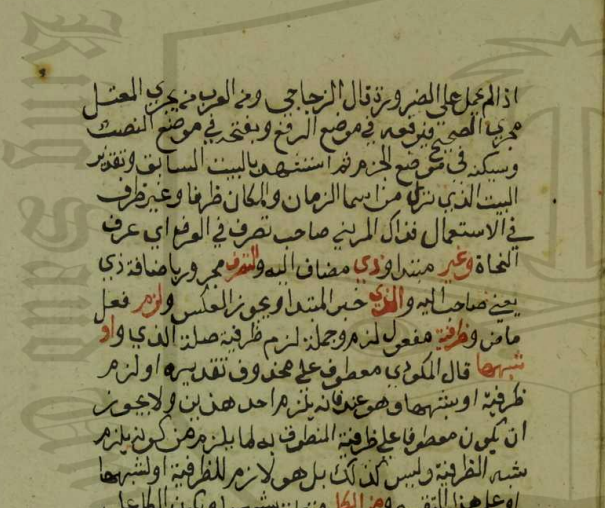 اذا لم يحمل على الضرورة قال الزجاجي ومن العرب من يجري المعتل
مجرى الصحيح فيرفعه في موضع الرفع ويفتحه في موضع النصب
ويسكنه في موضع الجزم ثم استشهد بالبيت السابق وتقدير
البيت الذي نزل من اسما الزمان والمكان ظرفا وغير ظرف
في الاستعمال فذاك المرئي صاحب تصرف في العرف اي عرف
النحاة وغير مبتدا وذي مضاف اليه والتصرف مجرور باضافة ذي
يعني صاحب اليه والذي خبر المبتدا ويجوز العكس ولزم فعل
ماض وظرفية مفعول لزم وجملة لزم ظرفية صلة الذي واو
شبهها قال المكودي معطوف على محذوف تقديره او لزم
ظرفية او شبهها وهو عند فانه يلزم احد هذين ولا يجوز
ان يكون معطوفا على ظرفية المنطوف به لما يلزم من كونه يلزم
شبه الظرفية وليس كذلك بل هو لازم للظرفية او لشبهها